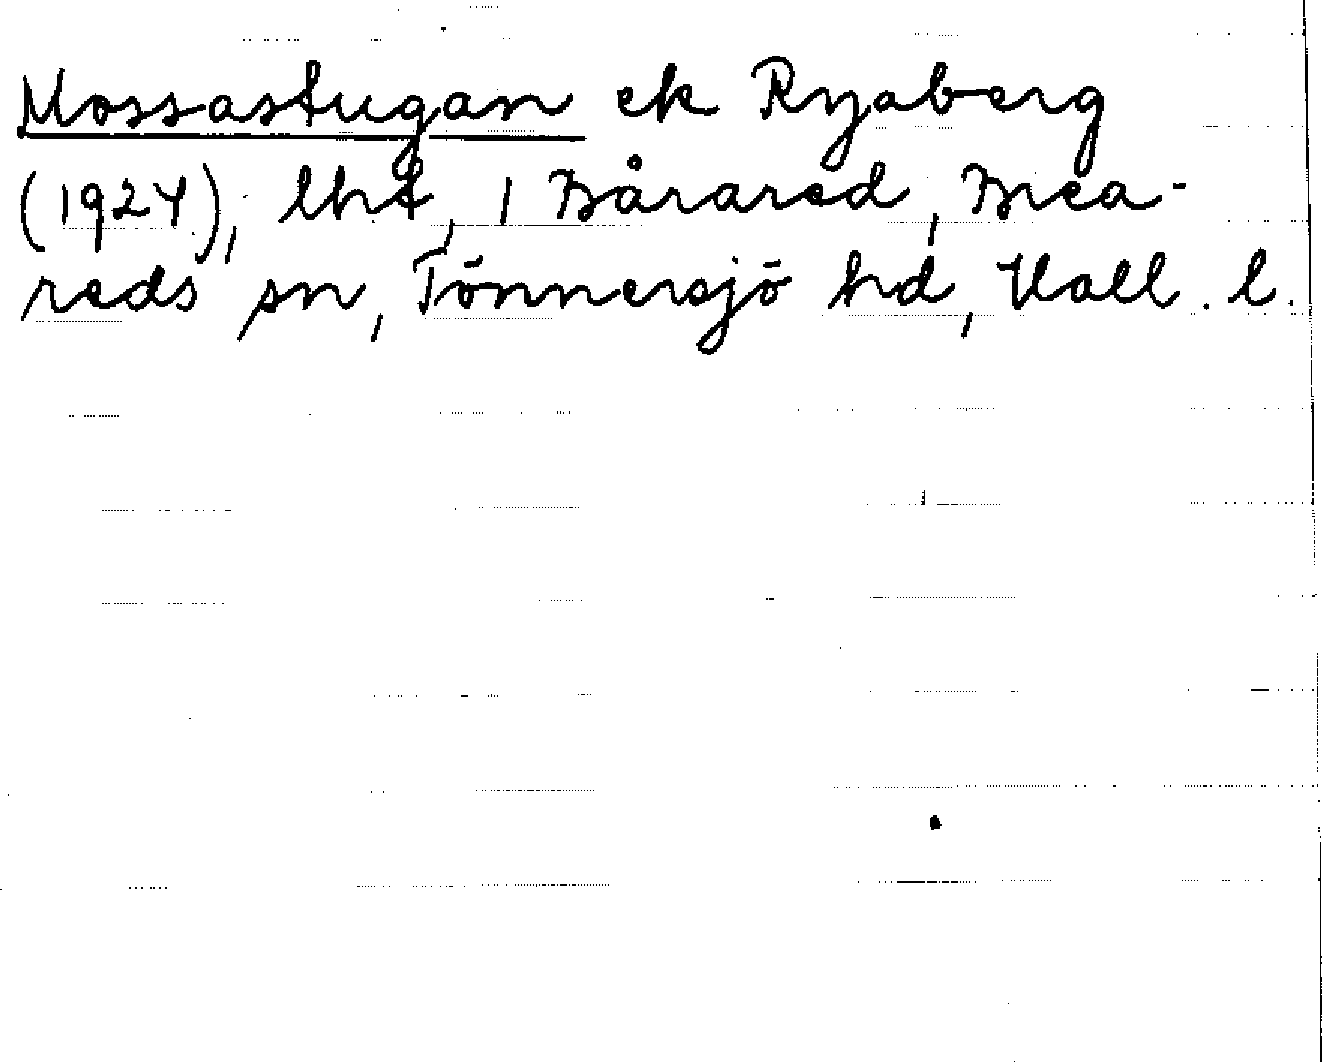 Mossastugan ek Ryaberg
(1924), lht, 1 Bårared, Brea-
reds sn, Tönnersjö hd, Hall. l.